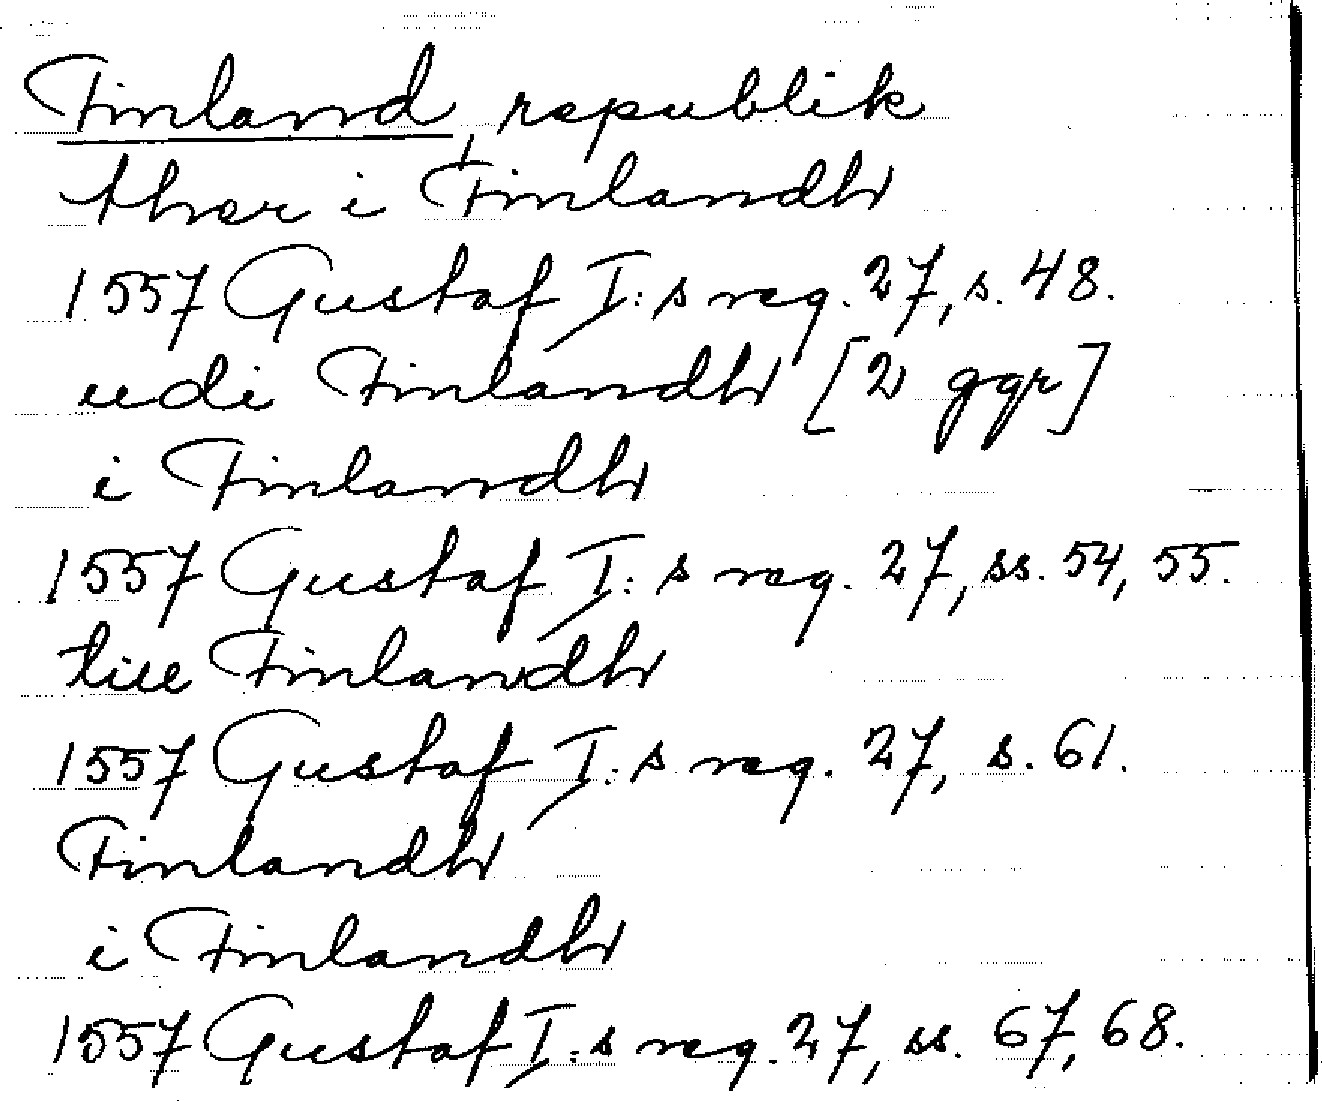 Finland, republik
ther i Finlandh
1557 Gustaf I:s reg. 27, s. 48.
udi Finlandh [2 ggr]
i Finlandh
1557 Gustaf I:s reg. 27, ss. 54, 55.
till Finlandh
1557 Gustaf I:s reg. 27, s. 61.
Finlandh
i Finlandh
1557 Gustaf I:s reg. 27, ss. 67, 68.